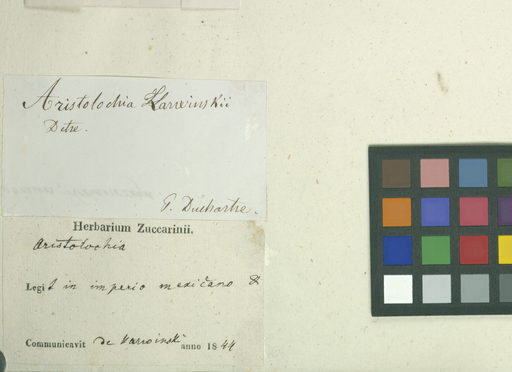 Aristolochia Karwinskii
Dctre.
P. Duchartre.
Herbarium Zuccarinii.
Aristolochia
Legit in imperio mexicano &
Communicavit de Karwinski anno 1844